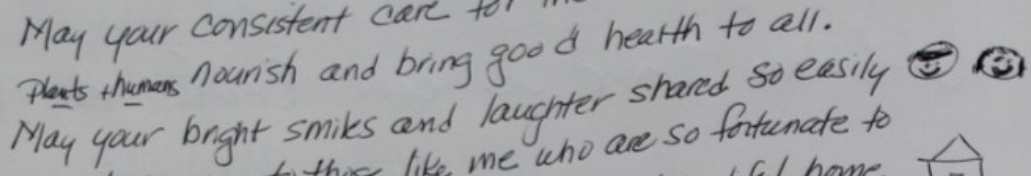 May your consistent care for
Plants + humans nourish and bring good health to all.
May your bright smiles and laughter shared so easily
like me who are so fortunate to
home